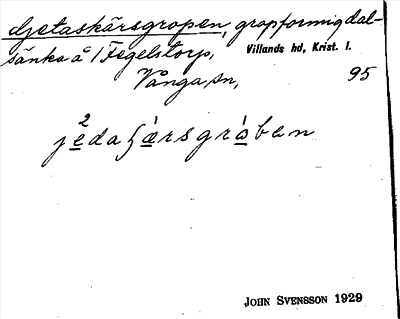 djetaskärsgropen, gropformig dal-
sänka å 1 Fegelstorp, Villands hd, Krist. l.
Vånga sn, 95
2
jedaʃærsgraben
JOHN SVENSSON 1929